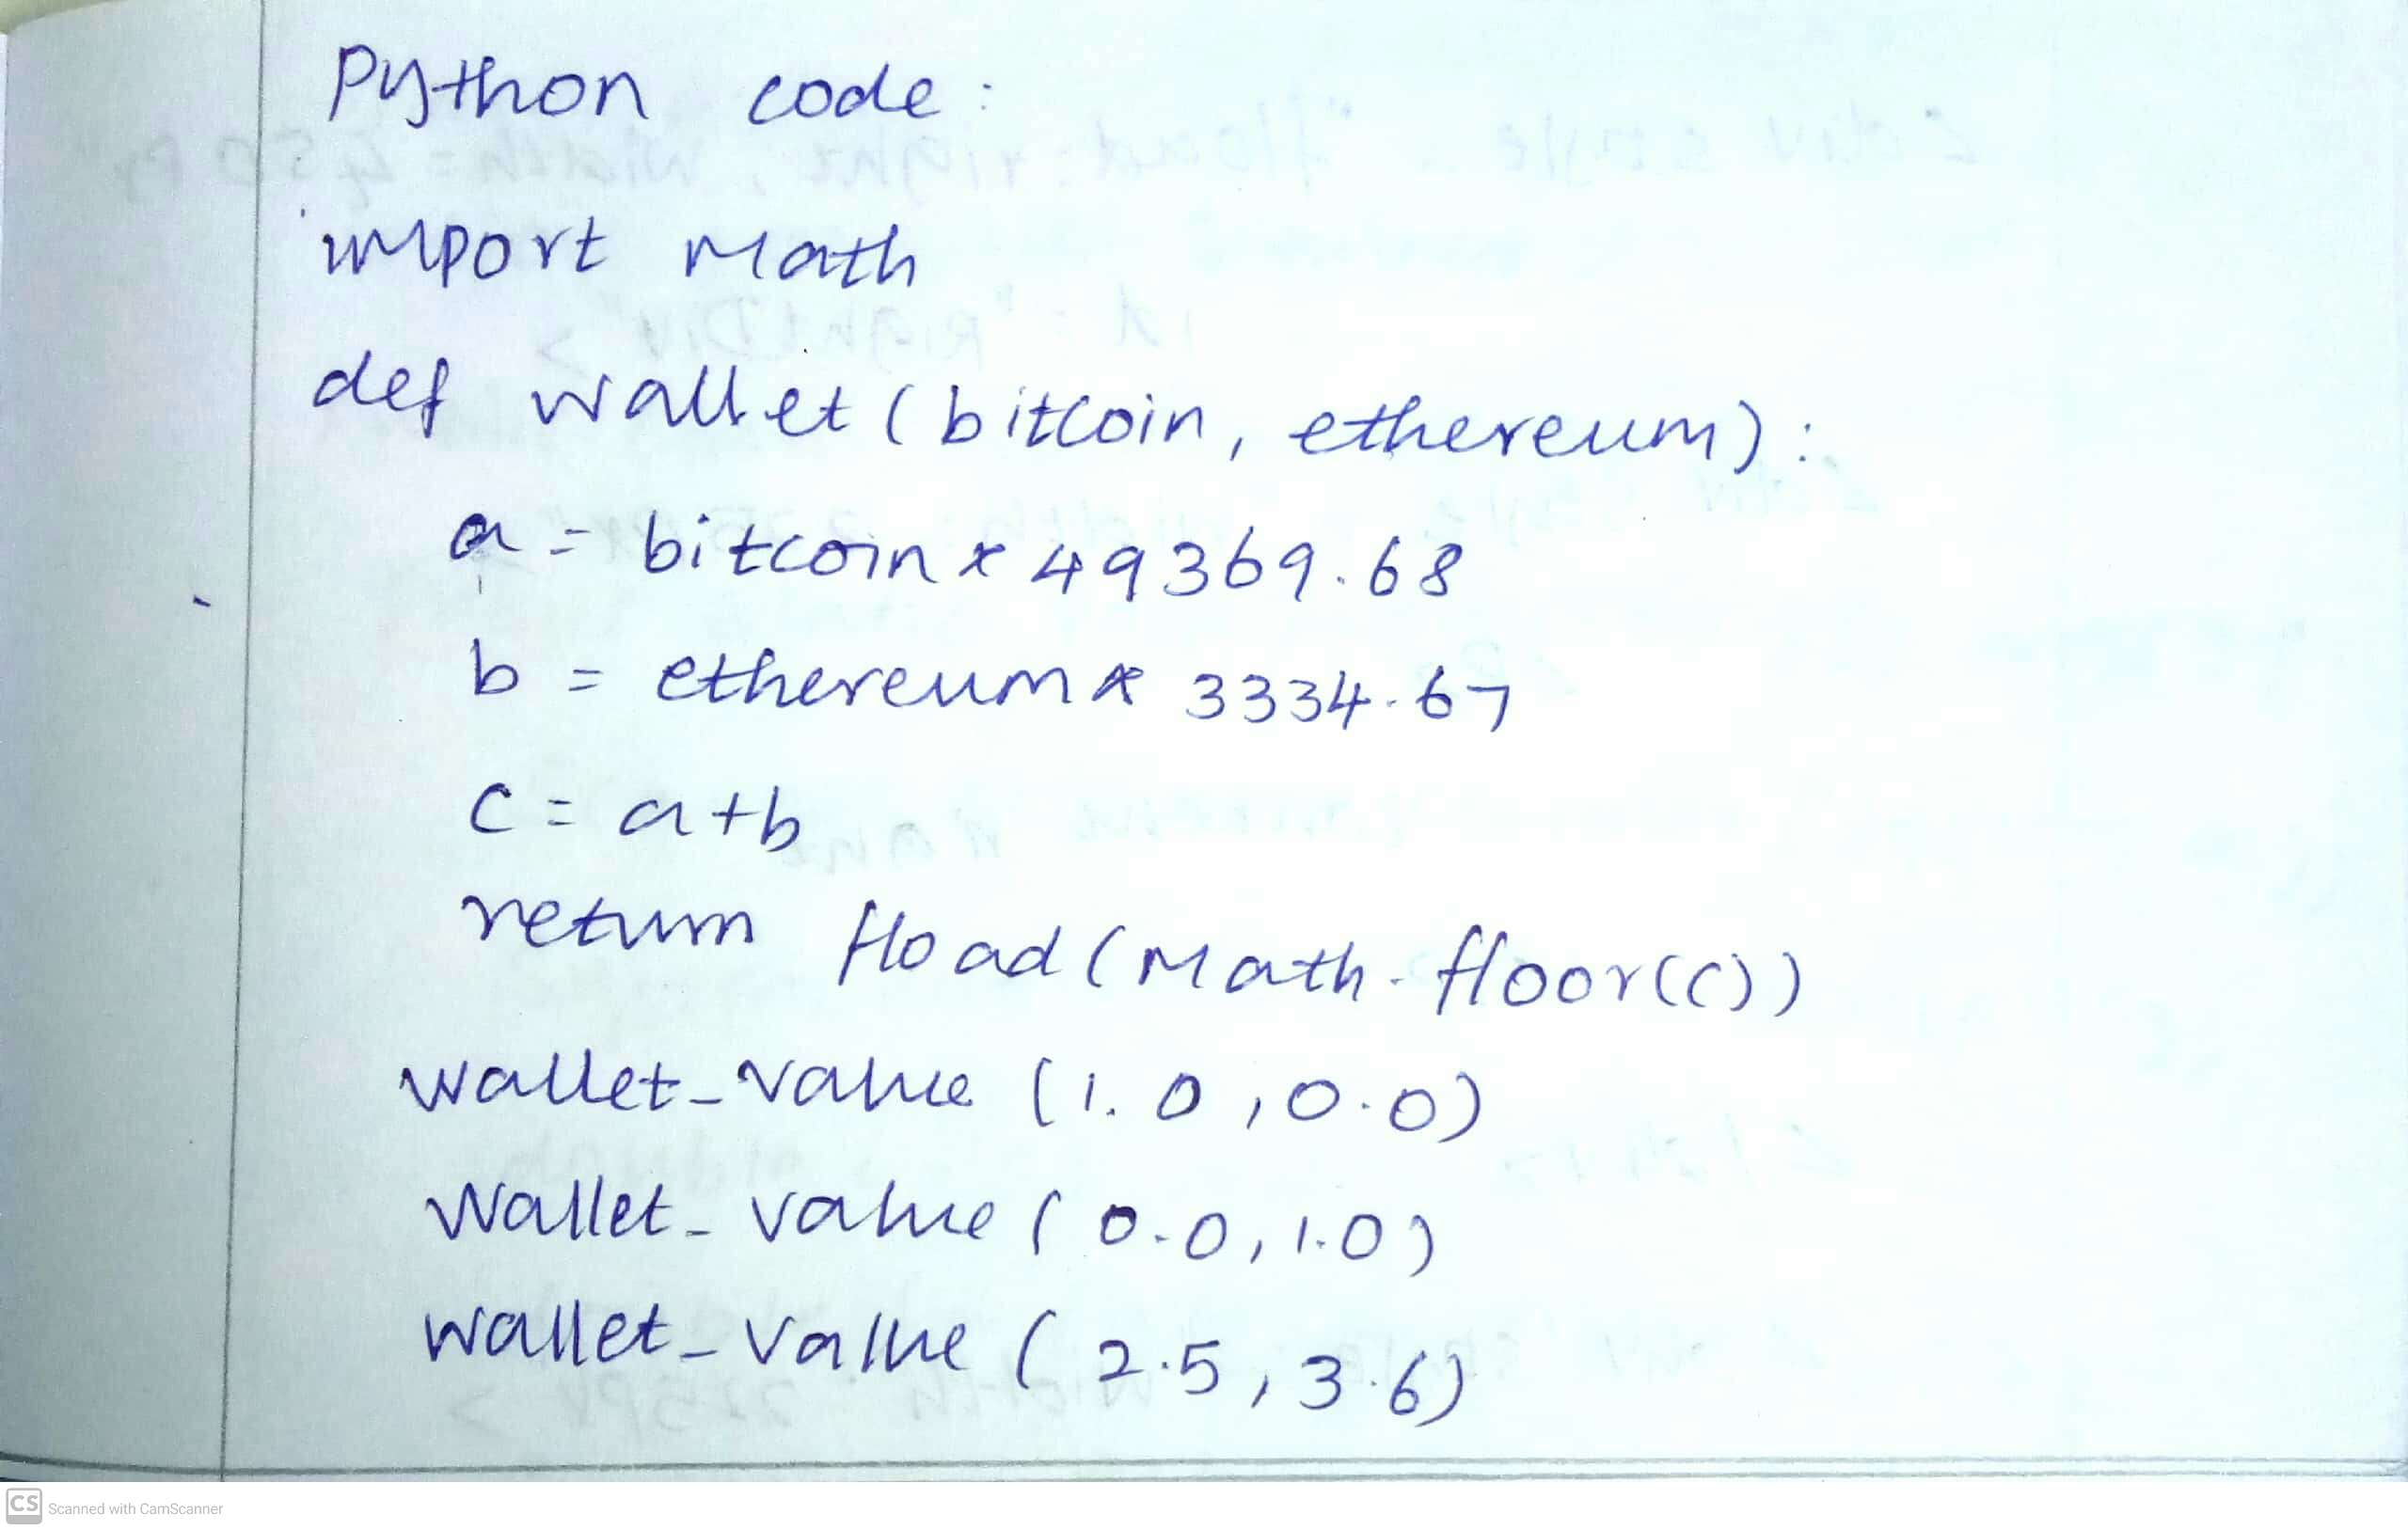 Python code:
import math
def wallet(bitcoin, ethereum):
a = bitcoin * 49369.68
b = ethereum * 3334.67
c = a+b
return fload(math.floor(c))
wallet_value (1.0,0.0)
wallet_value (0.0,1.0)
wallet_value (2.5,3.6)
CS Scanned with CamScanner